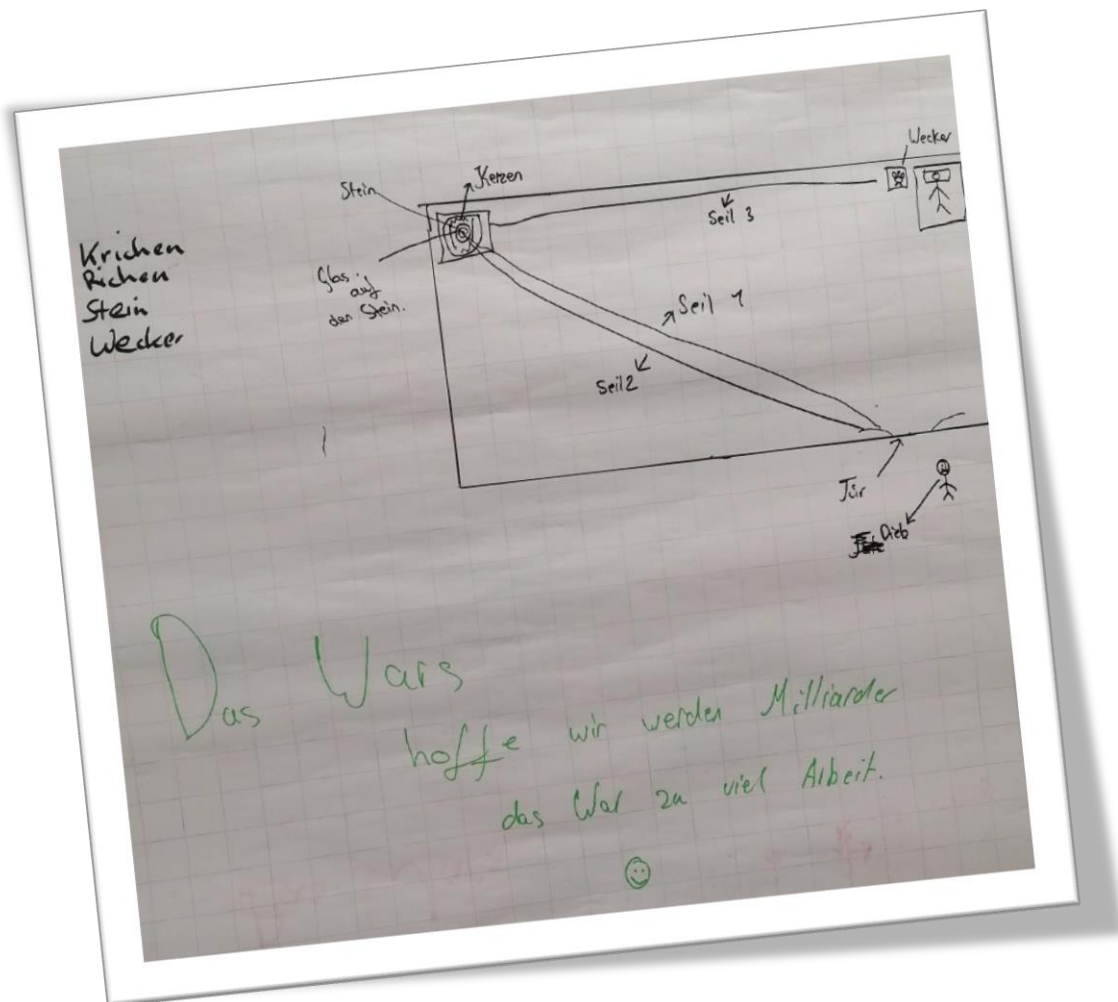 Krichen
Richen
Stein
Wecker
Stein
Kerzen
Wecker
Glas
auf
den Stein.
Seil 3
Seil 1
Seil 2
Tür
Dieb
Das Wars
hoffe wir werden Milliarder
das War zu viel Arbeit.